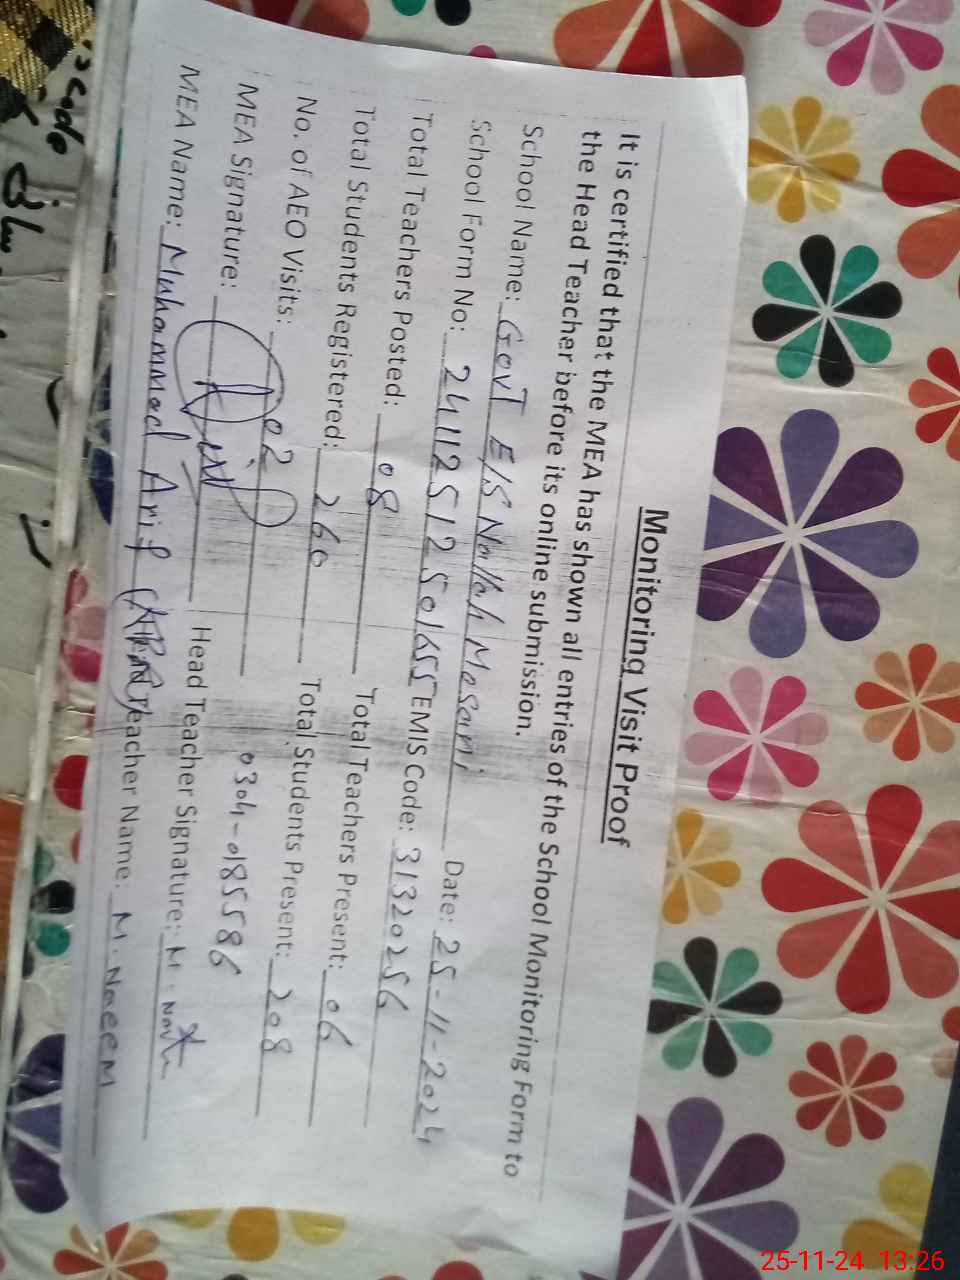 Monitoring Visit Proof
It is certified that the MEA has shown all entries of the School Monitoring Form to
the Head Teacher before its online submission.
School Name: GovT E/S Nallah Masani Date: 25-11-2024
School Form No: 24112512501655 EMIS Code: 31320256
Total Teachers Posted: 08 Total Teachers Present: 06
Total Students Registered: 260 Total Students Present: 208
No. of AEO Visits: 02 0304-0185586
MEA Signature: Head Teacher Signature: M.
MEA Name: Muhammad Arif Teacher Name: M. NaeeM
25-11-24 13:26